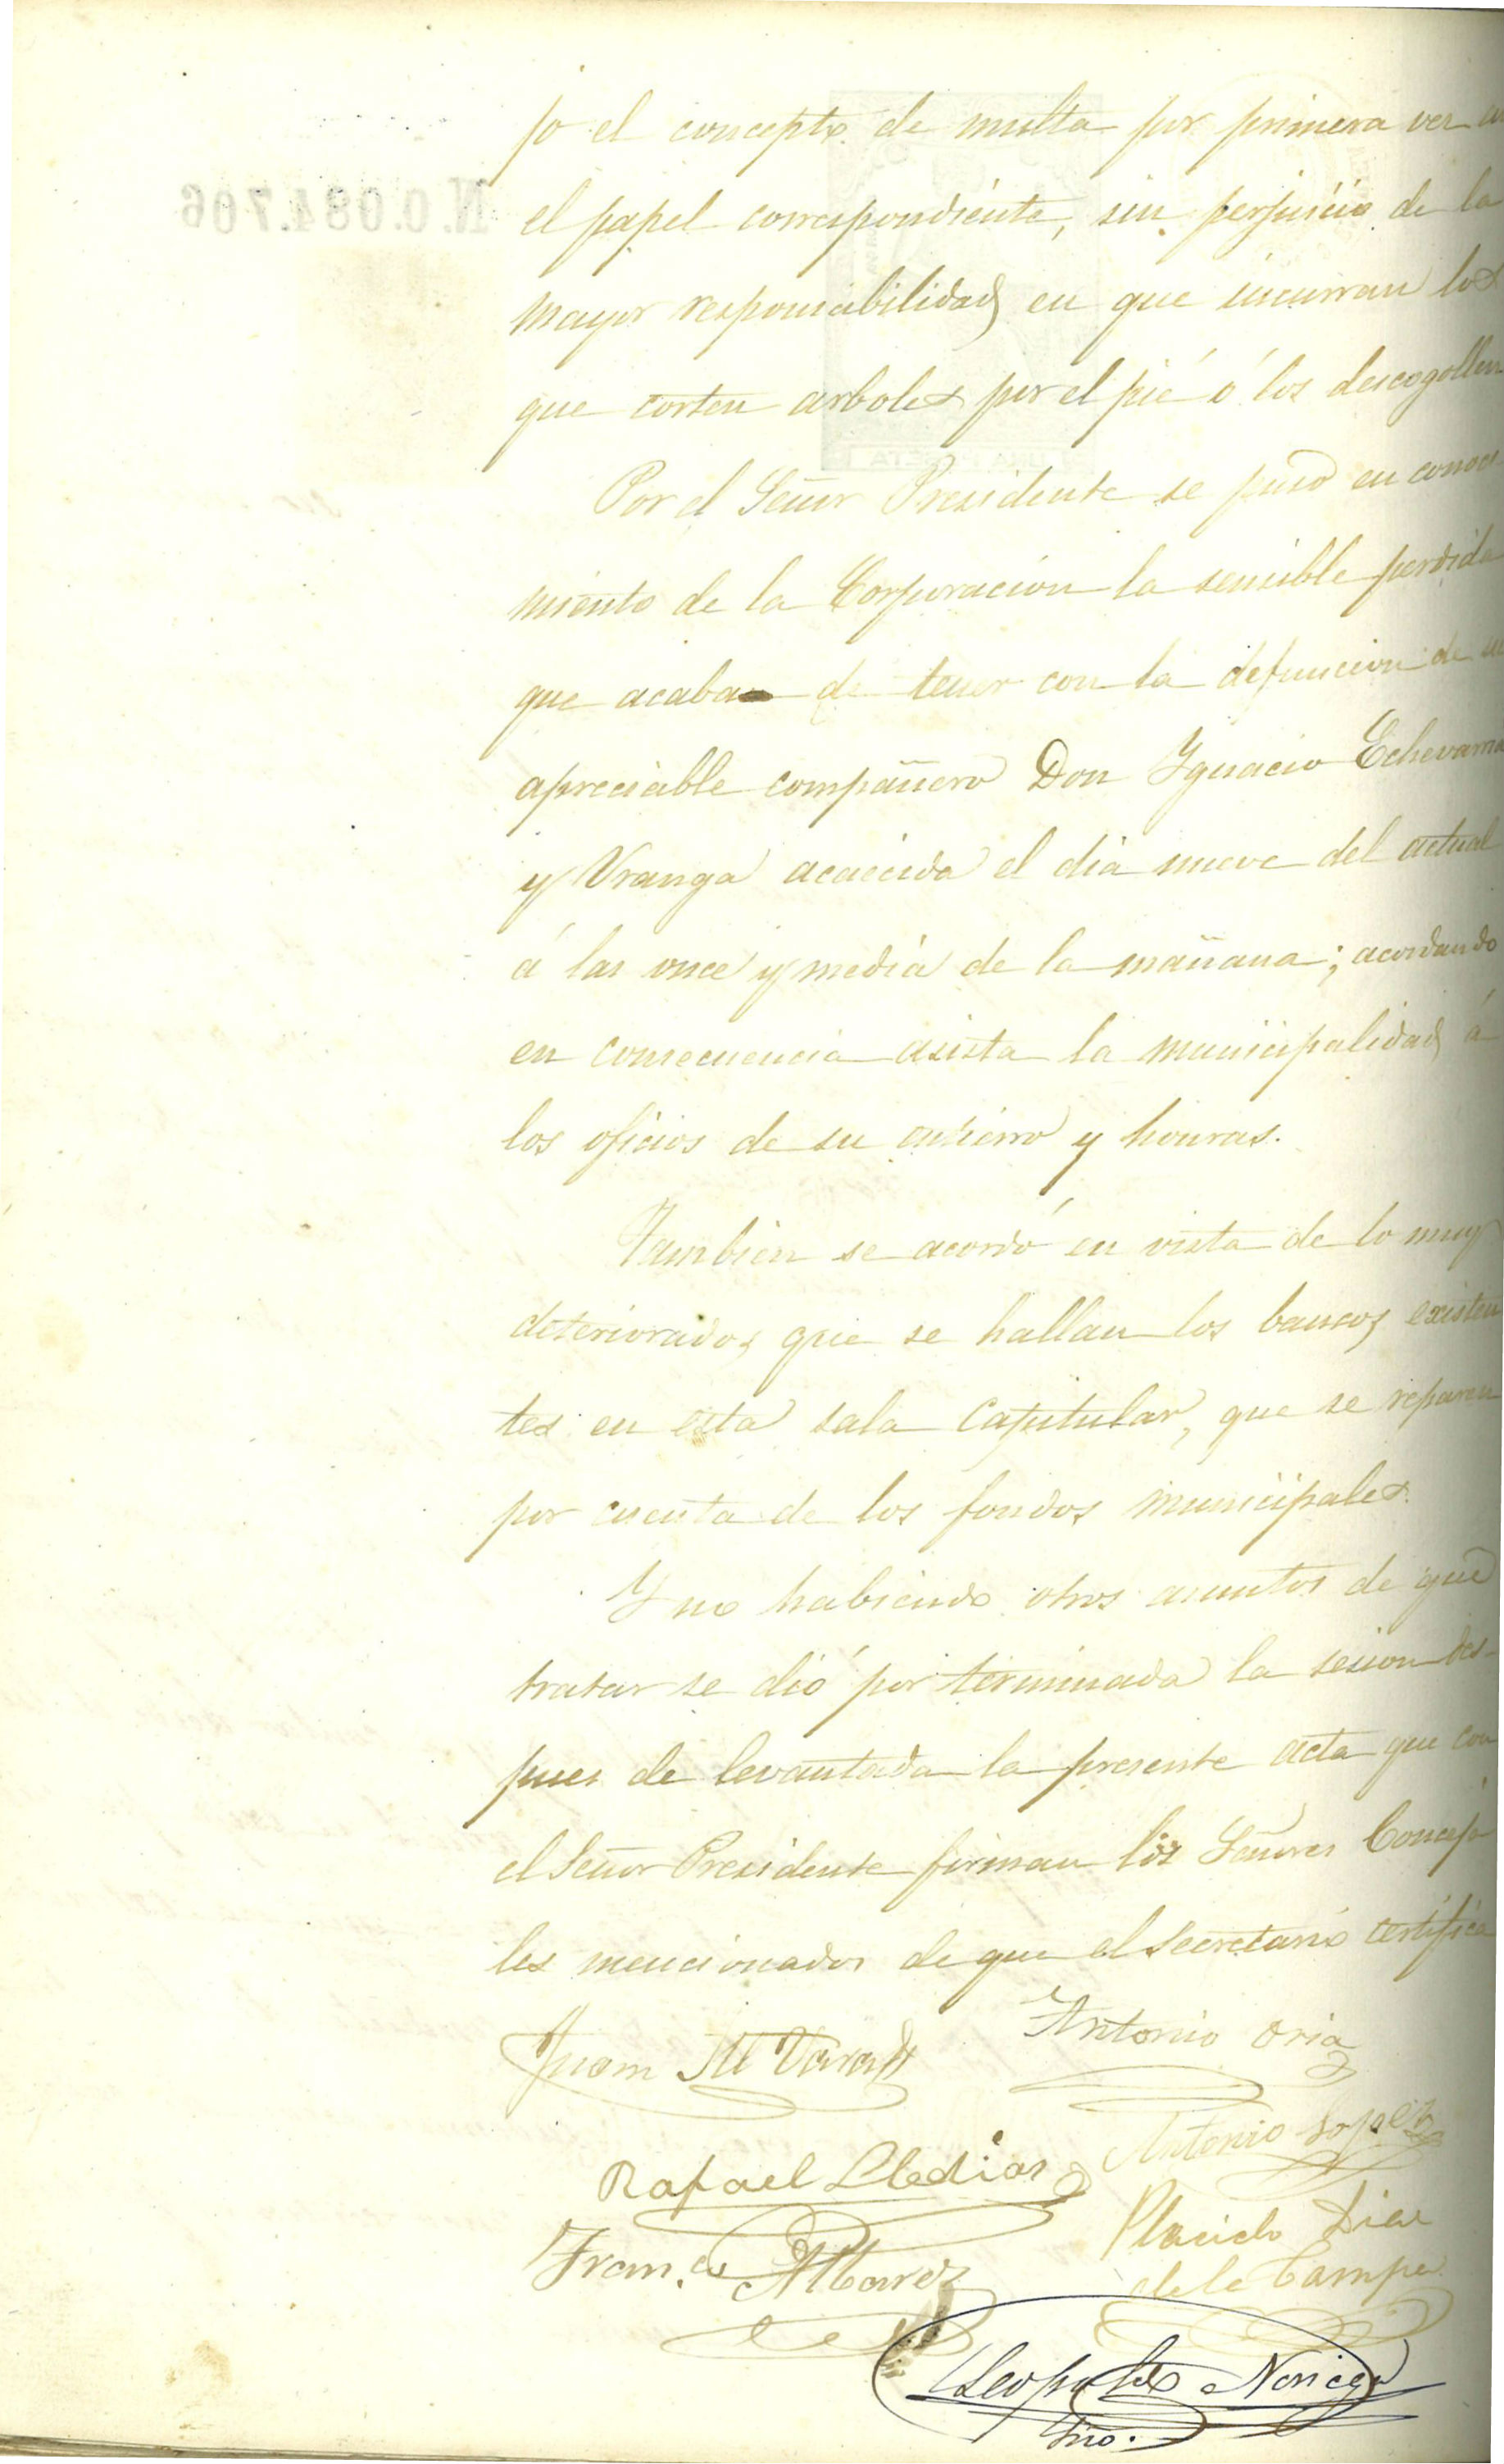 jo el concepto de multa por primera vez en
el papel correspondiente, sin perjuicio de la
mayor responsabilidad en que incurran los
que corten arboles por el pié ó los descogollen
Por el Señor Presidente se puso en conoci-
miento de la Corporacion la sensible perdida
que acaba de tener con la defuncion de su
apreciable compañero Don Ygnacio Echevarria
y Uranga acaecida el dia nueve del actual
á las once y media de la mañana; acordando
en consecuencia asista la municipalidad á
los oficios de su entierro y honras.
Tambien se acordó en vista de lo muy
deteriorados que se hallan los bancos existen
tes en esta sala capitular, que se reparen
por cuenta de los fondos municipales.
Y no habiendo otros asuntos de que
tratar se dió por terminada la sesion des-
pues de levantada la presente acta que con
el Señor Presidente firman los Señores Conceja
les mencionados de que el Secretario certifica
Juan M Antonio Oria
Rafael Antonio Lopez
Fran.co Albarez Placido Diaz
de la Campa
Leopoldo Noriega
Srio.
N.0.084.706
UNA PESETA